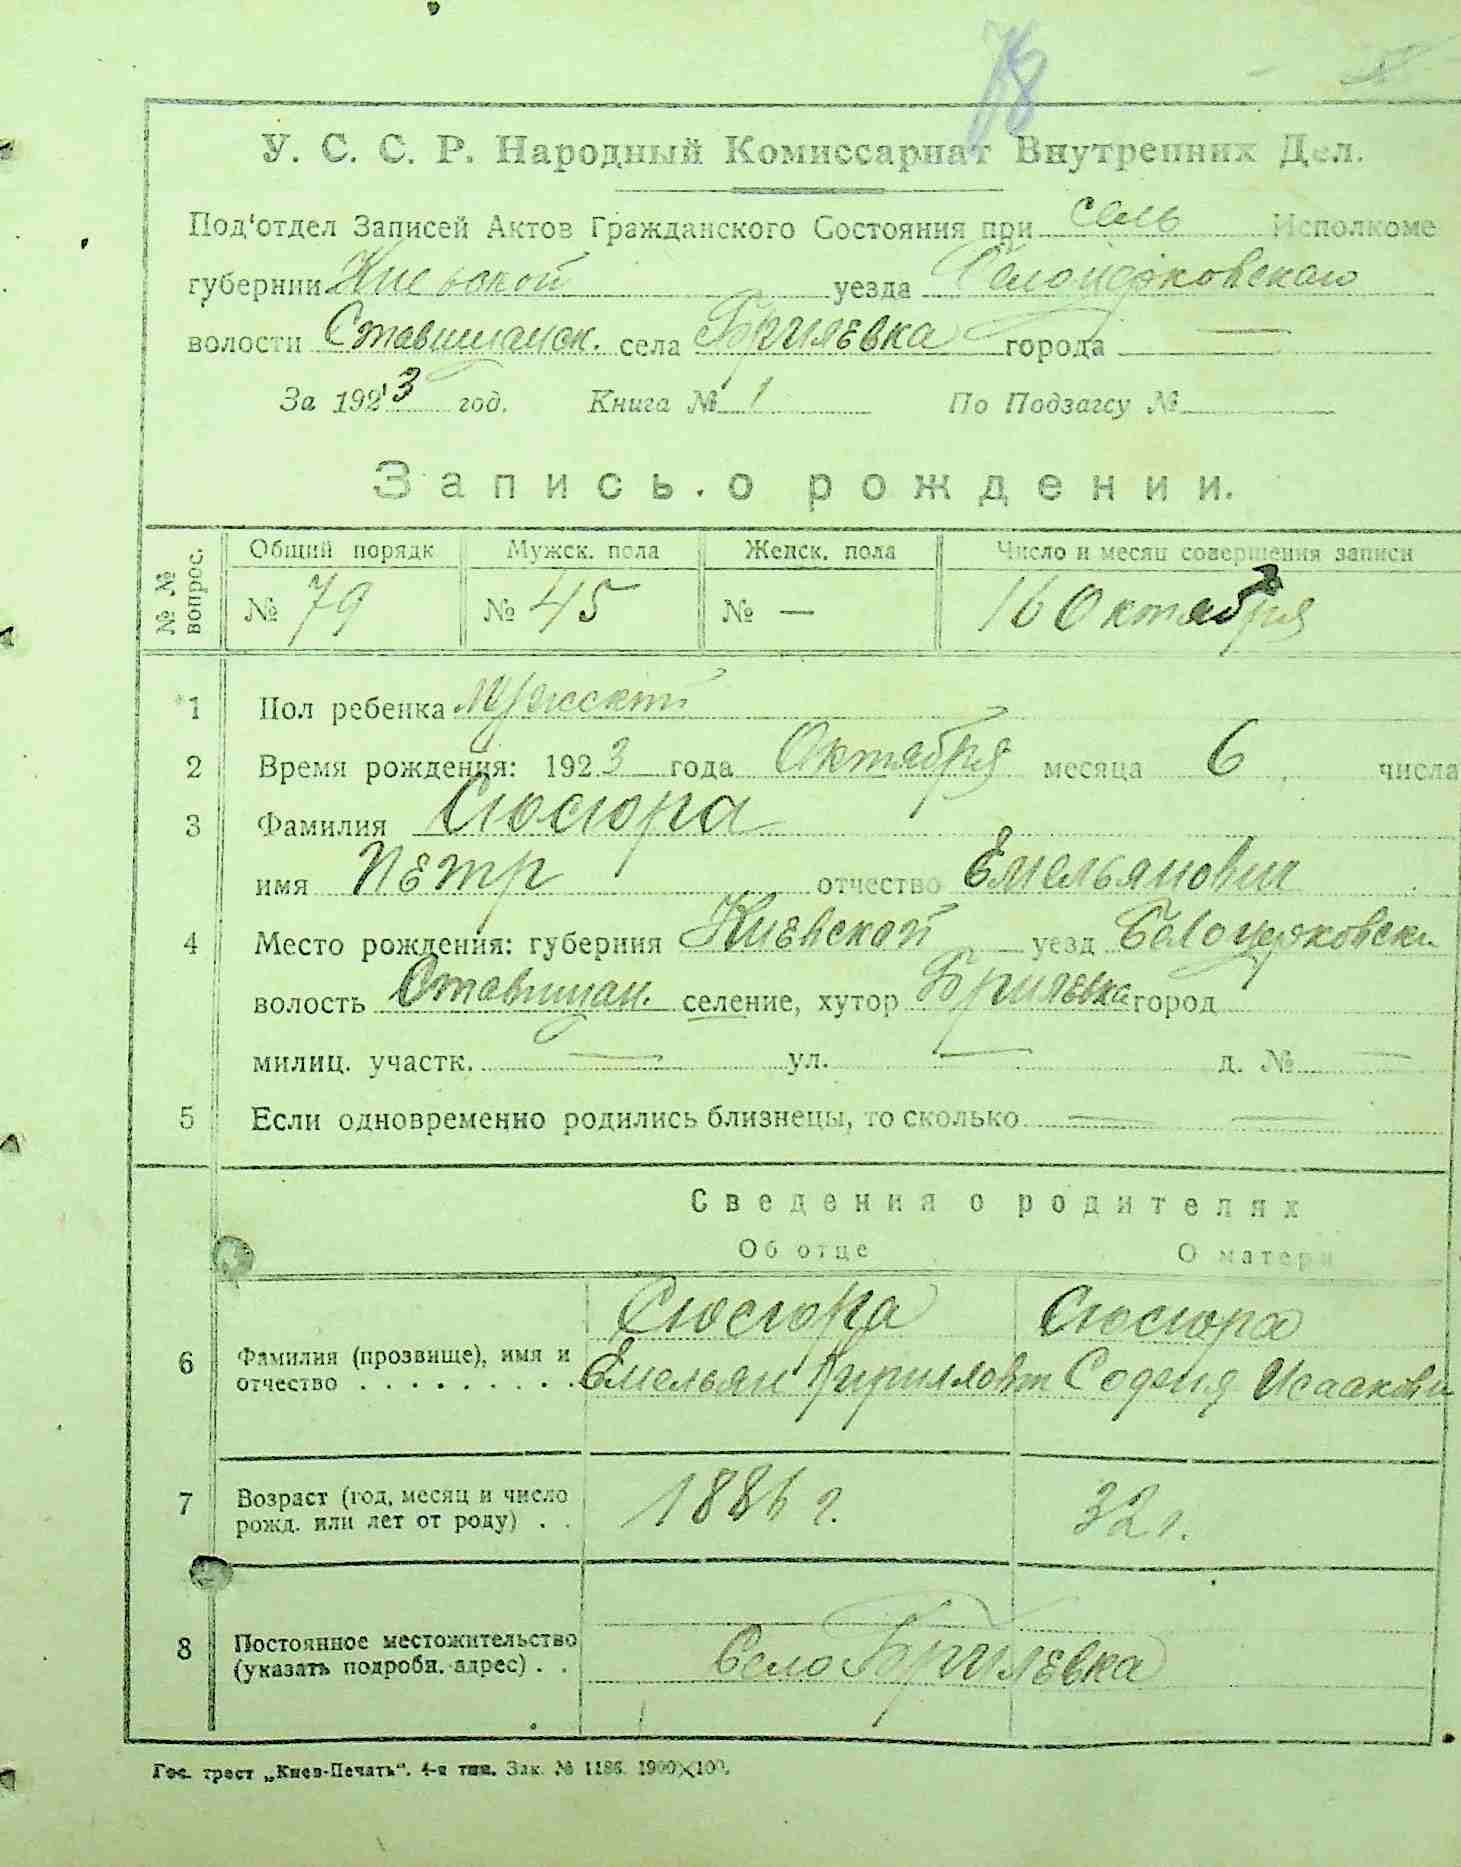 78
У. С. С. Р. Народный Комиссариат Внутренних Дел.
Под'отдел Записей Актов Гражданского Состояния при сель Исполкоме
губернии Киевской уезда Белоцерковского
волости Ставищанск. села Брилевка города —
За 1923 год. Книга № 1 По Подзагсу №
Запись о рождении.
№ № вопрос. Общий порядк Мужск. пола Женск. пола Число и месяц совершения записи
№ 79 № 45 № — 16 Октября
1 Пол ребенка мужской
2 Время рождения: 1923 года Октября месяца 6 числа
3 Фамилия Сюсюра
имя Петр отчество Емельянович
4 Место рождения: губерния Киевской уезд Белоцерковски
волость Ставищан. селение, хутор Брилевка город
милиц. участк. — ул. — д. № —
5 Если одновременно родились близнецы, то сколько — —
Сведения о родителях
Об отце О матери
Сюсюра Сюсюра
6 Фамилия (прозвище), имя и
отчество . . . . . . . . . Емельян Кириллов Исаакови
7 Возраст (год, месяц и число
рожд. или лет от роду) . . 1886 г. 32 г.
8 Постоянное местожительство
(указать подробн. адрес) . . Село Брилевка
Гос. трест „Киев-Печать". 4-я тип. Зак. № 1186. 1900×100.